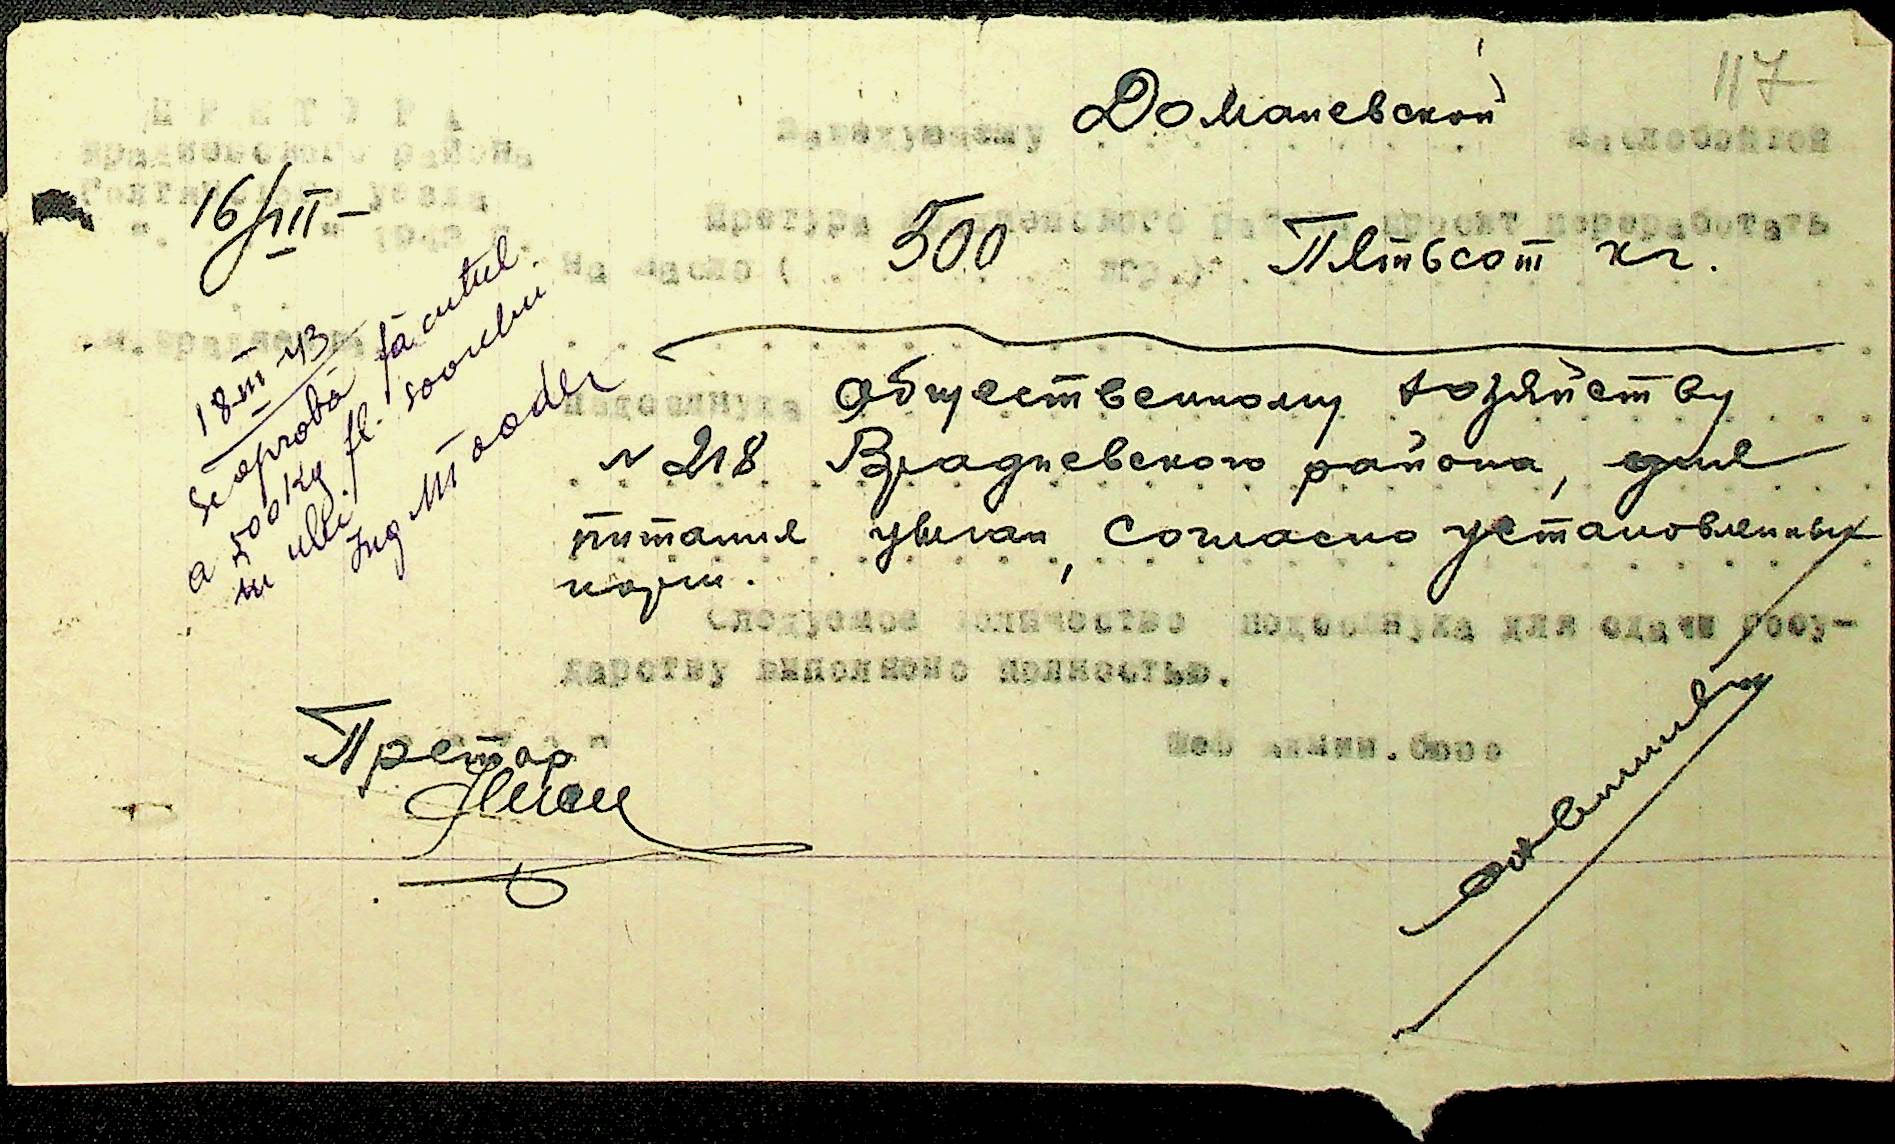 117
ПРЕТУРА
Врадиевского района
Голтянского уезда
16/III –
Заведующему Доманевской маслобойной
Претура Врадиевского района просит переработать
на масло ( 500 кгр.) Пятьсот кг.
м. Врадиевка
18 III 43
Se aprobă făcutul
a 500 kg fl. soarelui
în ulei.
Ing
подсолнуха Общественному хозяйству
№ 218 Врадиевского района, для
питания , согласно установленных
норм.
Следуемое количество подсолнуха для сдачи госу-
дарству выполнено полностью.
Претор
Шеф админ. бюро